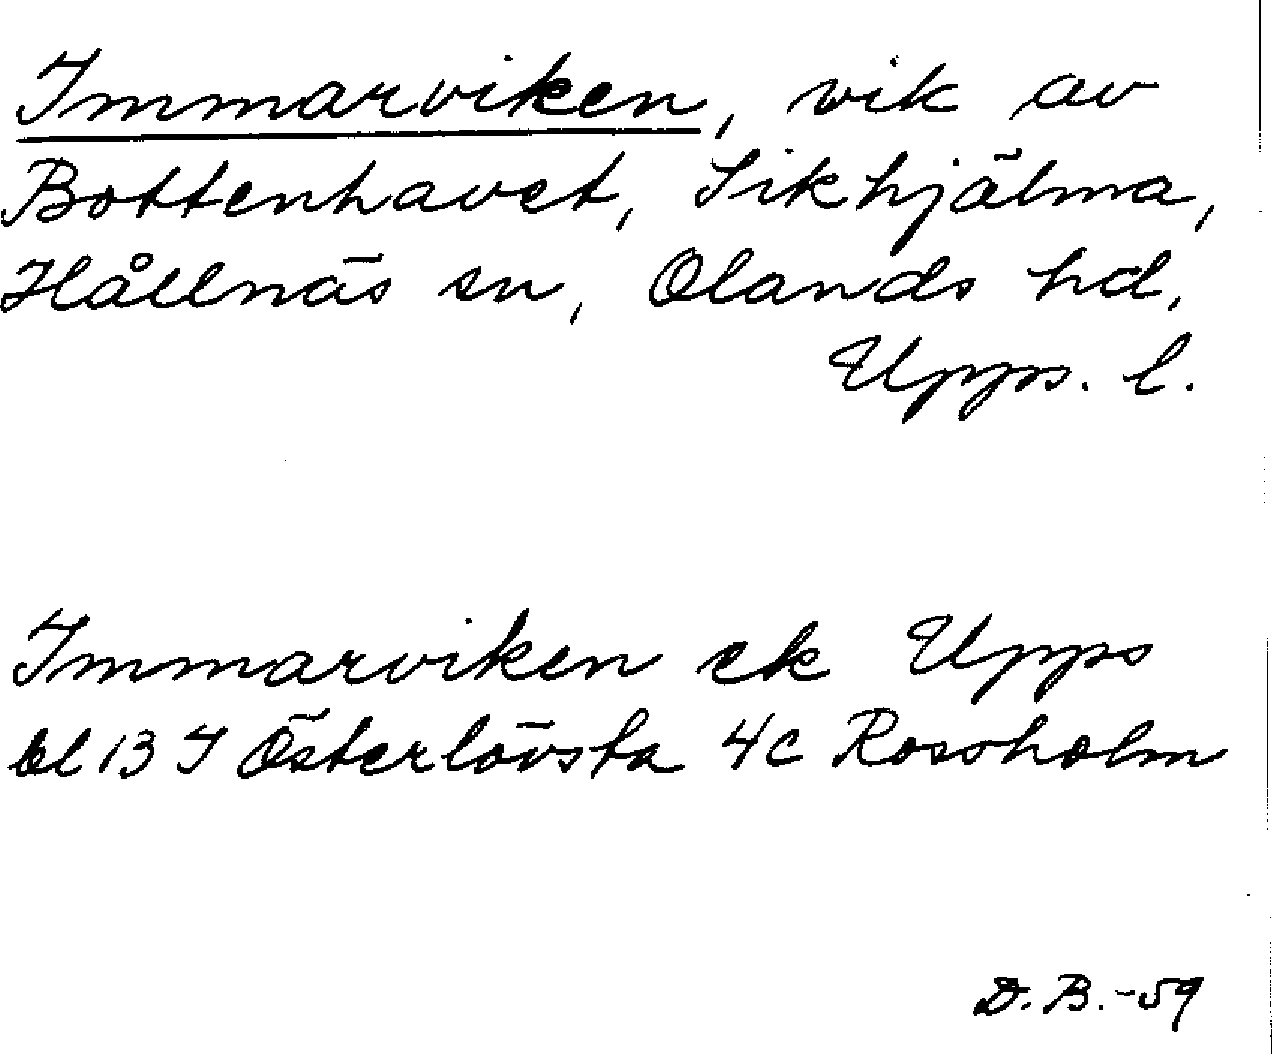 Immarviken, vik av
Bottenhavet, Sikhjälma,
Hållnäs sn, Olands hd,
Upps. l.
Immarviken ek Upps
bl 13 I Österlövsta 4c Rossholm
D.B.-59